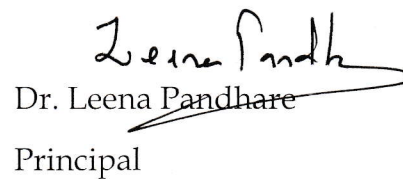 Leena Pandh
Dr. Leena Pandhare
Principal